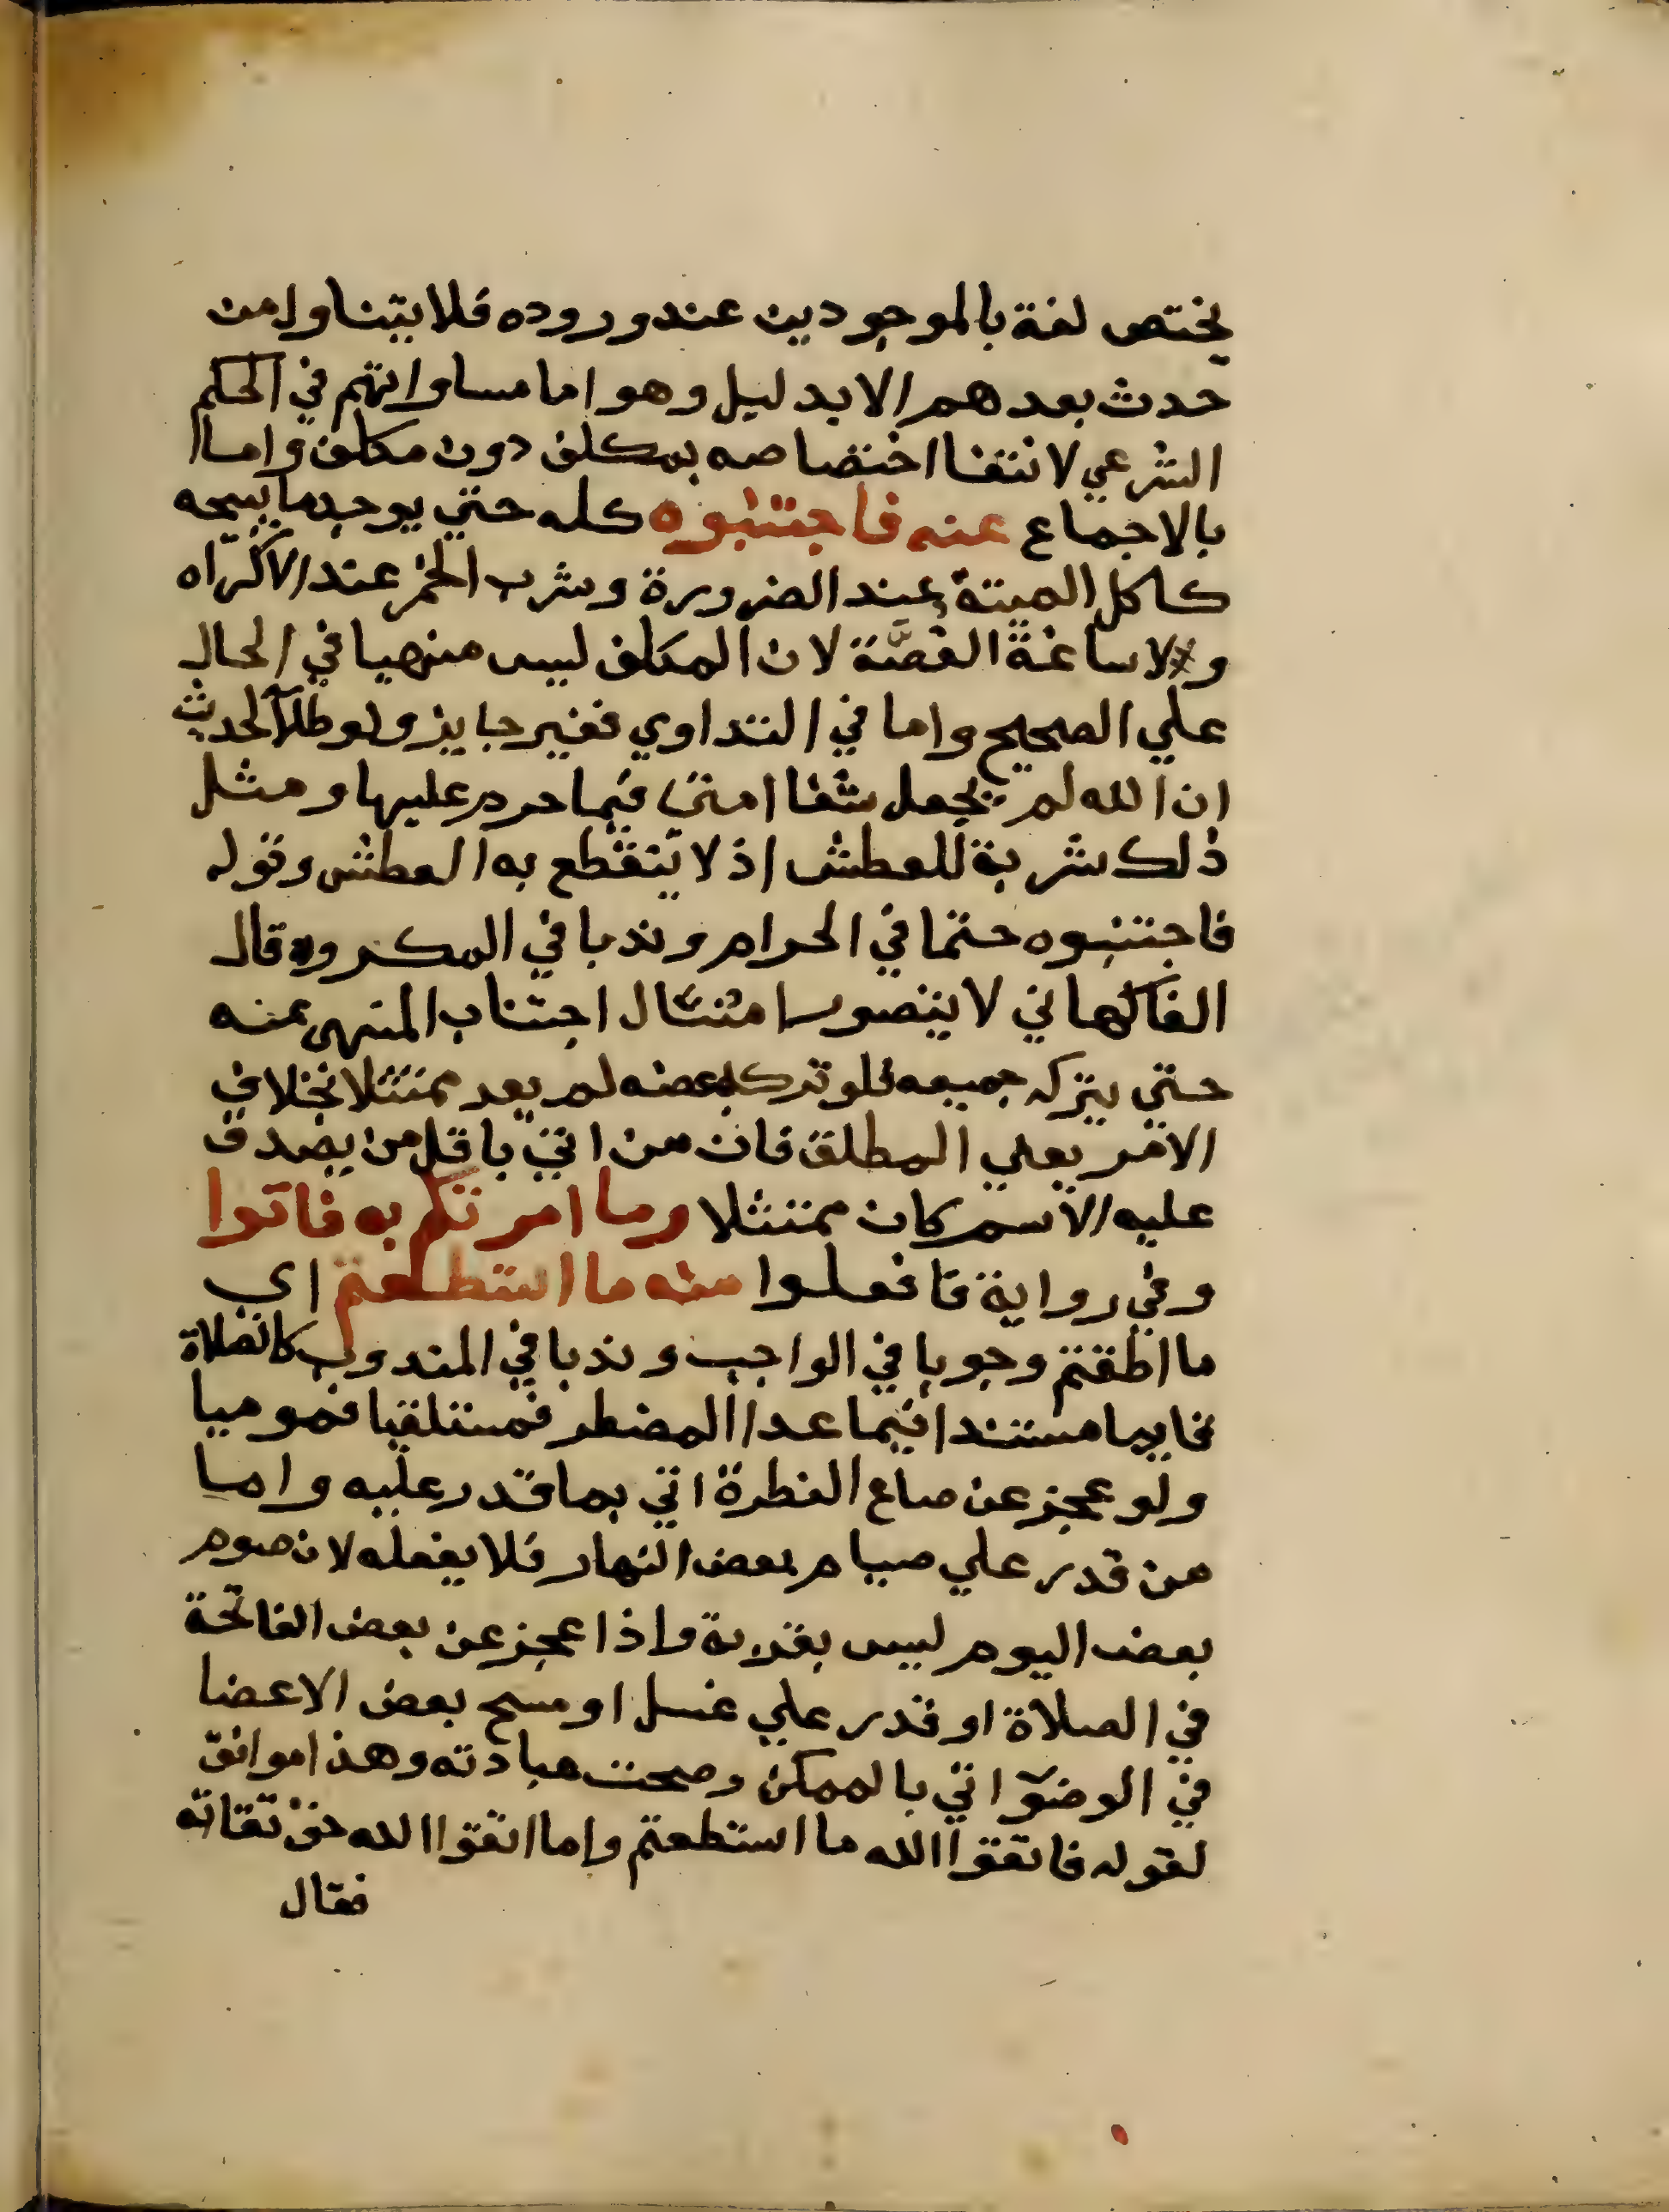 يختص لغة بالموجودين عند وروده فلا يتناول من
حدث بعدهم الا بدليل وهو اما مساواتهم في الحكم
الشرعي لانتفا اختصاصه بمكلف دون مكلف واما
بالاجماع عنه فاجتنبوه كله حتي يوجد ما يبيحه
كاكل الميتة عند الضرورة وشرب الخمر عند الاكراه
ولاساغة الغصّة لان المكلف ليس منهيا في الحال
علي الصحيح واما في التداوي فغير جايز ولو طلآ لحديث
ان الله لم يجعل شفا امتي فيما حرم عليها ومثل
ذلك شربة للعطش اذ لا ينقطع به العطش وقوله
فاجتنبوه حتما في الحرام وندبا في المكروه قال
الفاكهاني لا يتصور امتثال اجتناب المنهي عنه
حتي يترك جميعه فلو ترك بعضه لم يعد ممتثلا بخلاف
الامر يعني المطلق فان من اتي باقل من يصدق
عليه الاسم كان ممتثلا وما امرتكم به فاتوا
وفي رواية فافعلوا منه ما استطعتم اي
ما اطقتم وجوبا في الواجب وندبا في المندوب كالصلاة
قايما مستندا فيما عدا المضطر فمستلقيا فموميا
ولو عجز عن صاع الفطرة اتي بما قدر عليه واما
من قدر علي صيام بعض النهار فلا يفعله لان صوم
بعض اليوم ليس بقربة واذا عجز عن بعض الفاتحة
في الصلاة او قدر علي غسل او مسح بعض الاعضا
في الوضوٓ اتي بالممكن وصحت عبادته وهذا موافق
لقوله فاتقوا الله ما استطعتم واما اتقوا الله حق تقاته
فقال